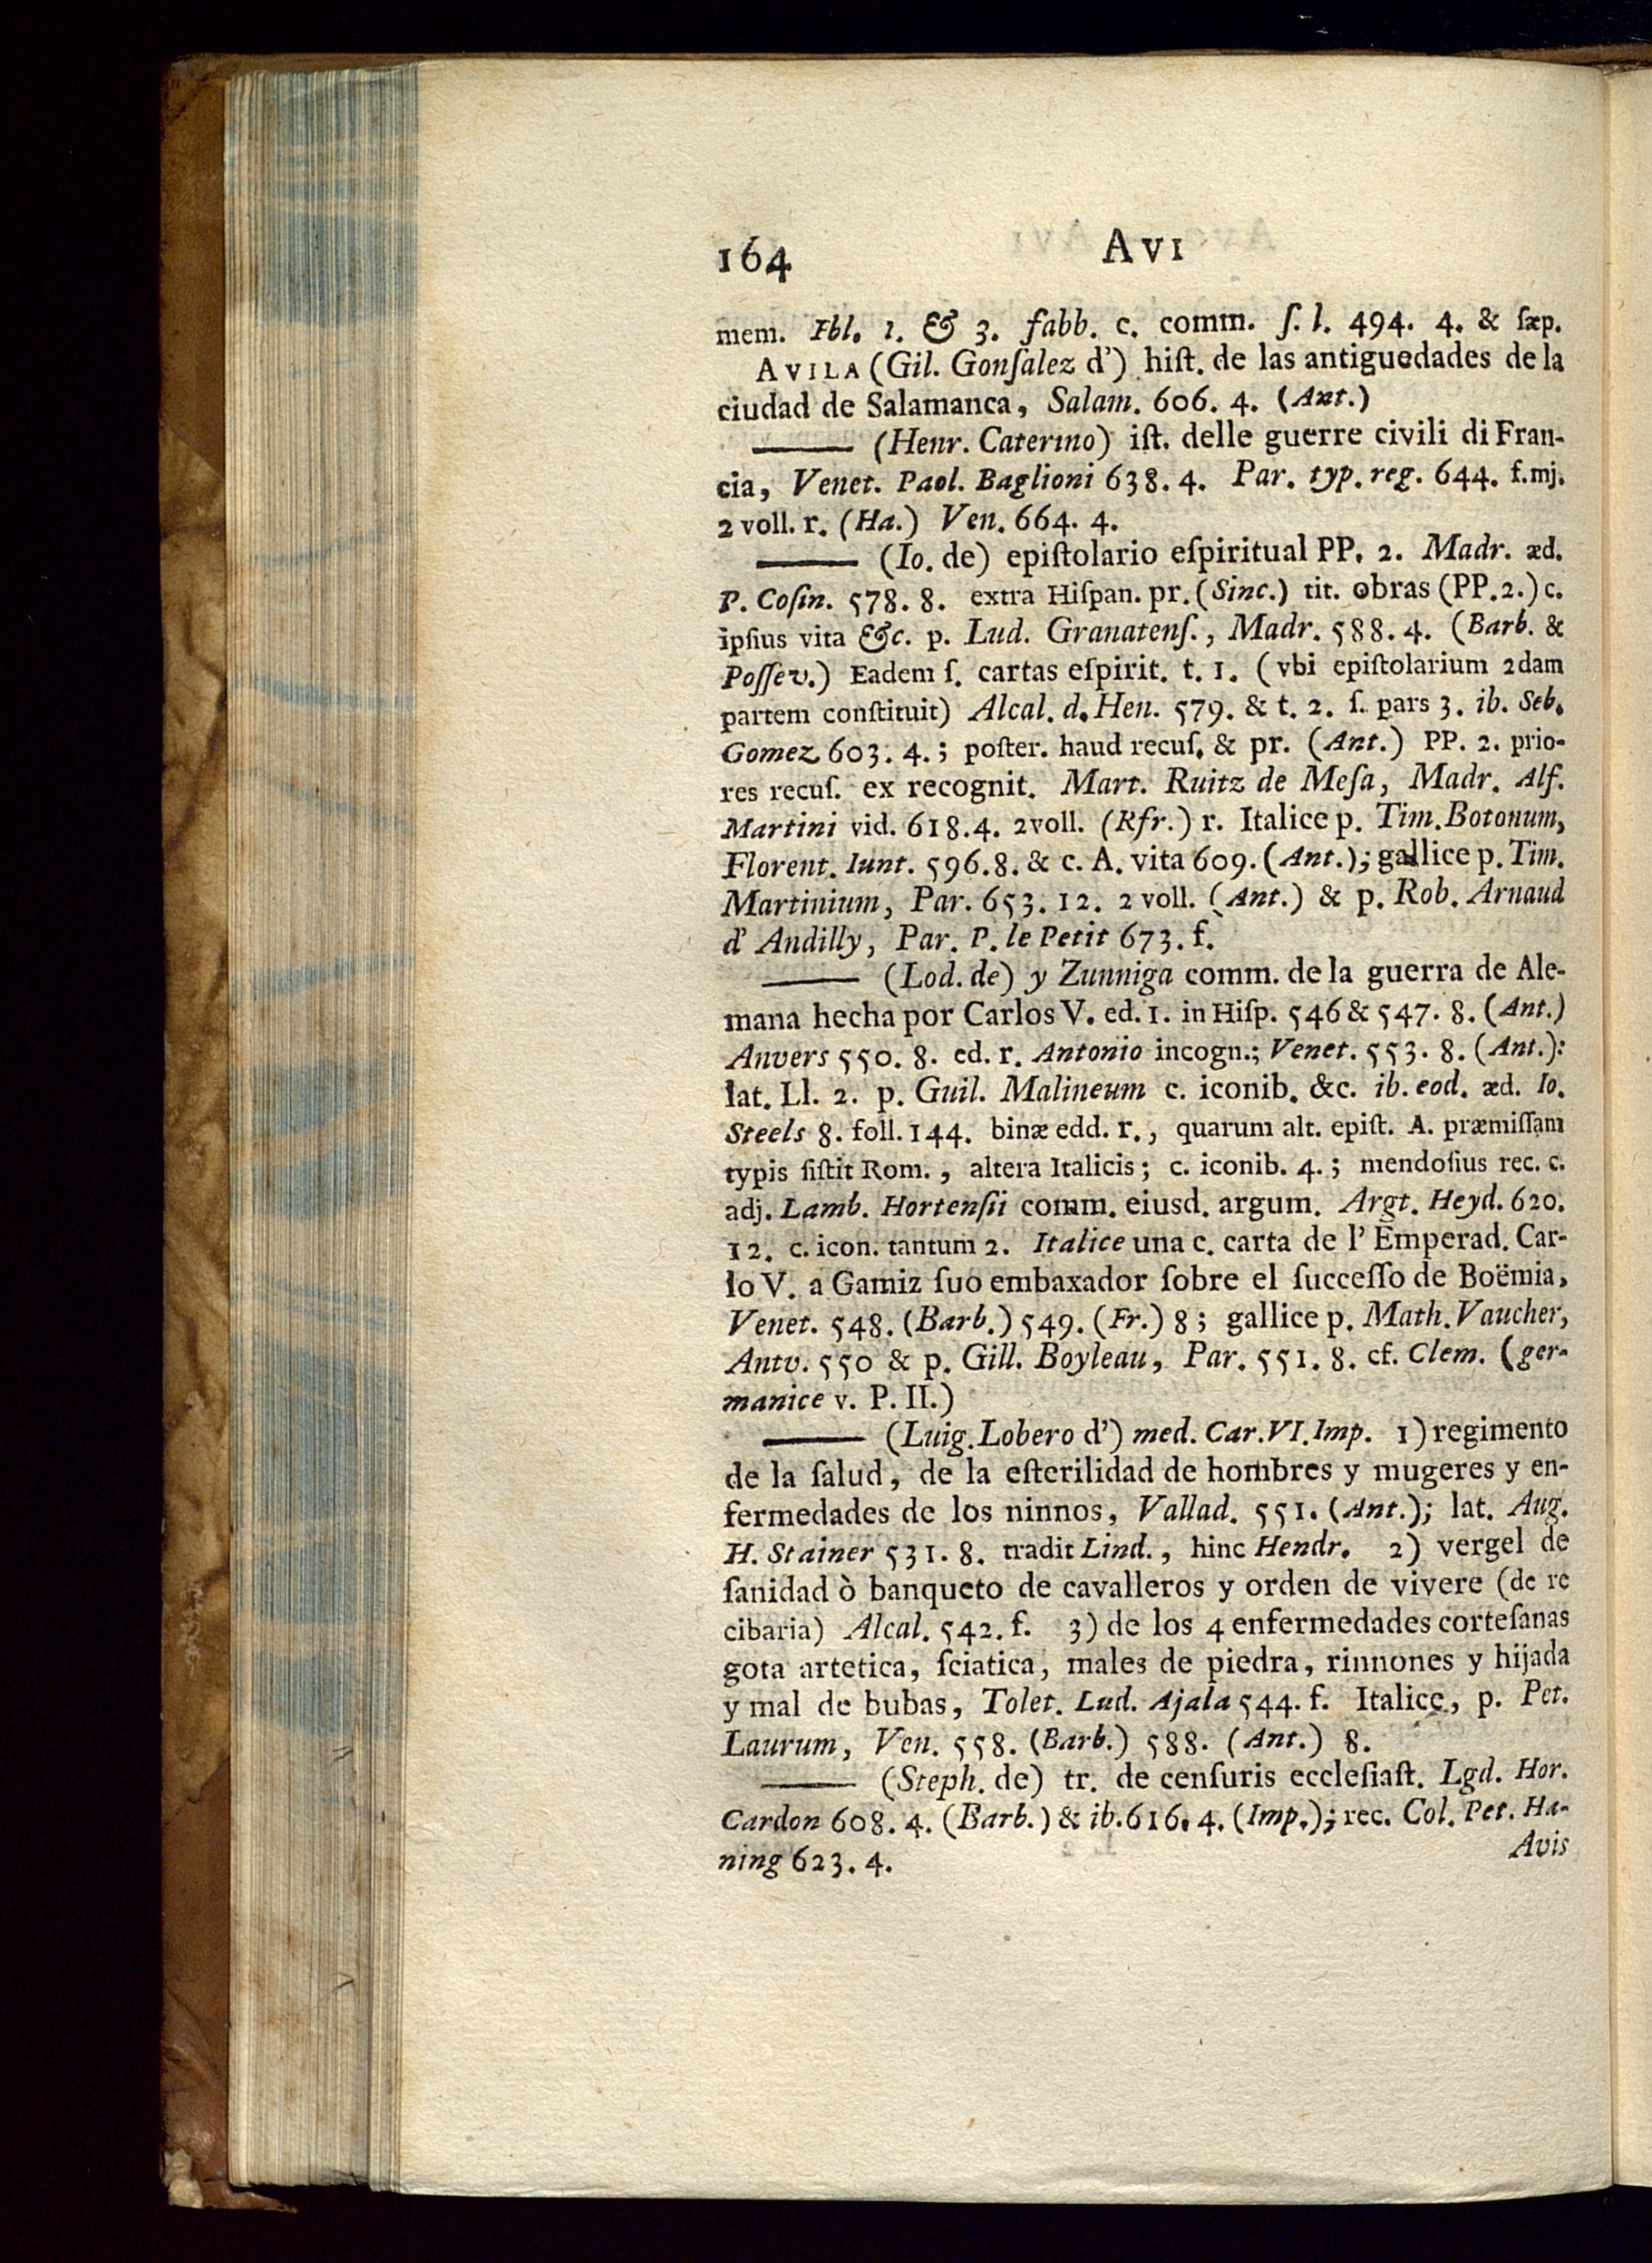 164 AVI
mem. Fbl. 1. & 3. fabb. c. comm. ſ. l. 494. 4. & ſæp.
AVILA (Gil. Gonſalez d') hiſt. de las antiguedades de la
ciudad de Salamanca, Salam. 606. 4. (Ant.)
——— (Henr. Caterino) iſt. delle guerre civili di Fran-
cia, Venet. Paol. Baglioni 638. 4. Par. typ. reg. 644. f. mj.
2 voll. r. (Ha.) Ven. 664. 4.
——— (Io. de) epiſtolario eſpiritual PP. 2. Madr. æd.
P. Coſin. 578. 8. extra Hiſpan. pr. (Sinc.) tit. obras (PP. 2.) c.
ipſius vita &c. p. Lud. Granatenſ., Madr. 588. 4. (Barb. &
Poſſev.) Eadem ſ. cartas eſpirit. t. 1. (vbi epiſtolarium 2dam
partem conſtituit) Alcal. d. Hen. 579. & t. 2. ſ. pars 3. ib. Seb.
Gomez 603. 4.; poſter. haud recuſ. & pr. (Ant.) PP. 2. prio-
res recuſ. ex recognit. Mart. Ruitz de Meſa, Madr. Alf.
Martini vid. 618. 4. 2 voll. (Rfr.) r. Italice p. Tim. Botonum,
Florent. Iunt. 596. 8. & c. A. vita 609. (Ant.); gallice p. Tim.
Martinium, Par. 653. 12. 2 voll. (Ant.) & p. Rob. Arnaud
d' Andilly, Par. P. le Petit 673. f.
——— (Lod. de) y Zunniga comm. de la guerra de Ale-
mana hecha por Carlos V. ed. 1. in Hiſp. 546 & 547. 8. (Ant.)
Anvers 550. 8. ed. r. Antonio incogn.; Venet. 553. 8. (Ant.):
lat. Ll. 2. p. Guil. Malineum c. iconib. &c. ib. eod. æd. Io.
Steels 8. foll. 144. binæ edd. r., quarum alt. epiſt. A. præmiſſam
typis ſiſtit Rom., altera Italicis; c. iconib. 4.; mendoſius rec. c.
adj. Lamb. Hortenſii comm. eiusd. argum. Argt. Heyd. 620.
12. c. icon. tantum 2. Italice una c. carta de l' Emperad. Car-
lo V. a Gamiz ſuo embaxador ſobre el ſucceſſo de Boëmia,
Venet. 548. (Barb.) 549. (Fr.) 8; gallice p. Math. Vaucher,
Antv. 550 & p. Gill. Boyleau, Par. 551. 8. cf. Clem. (ger-
manice v. P. II.)
——— (Luig. Lobero d') med. Car. VI. Imp. 1) regimento
de la ſalud, de la eſterilidad de hombres y mugeres y en-
fermedades de los ninnos, Vallad. 551. (Ant.); lat. Aug.
H. Stainer 531. 8. tradit Lind., hinc Hendr. 2) vergel de
ſanidad ò banqueto de cavalleros y orden de vivere (de re
cibaria) Alcal. 542. f. 3) de los 4 enfermedades corteſanas
gota artetica, ſciatica, males de piedra, rinnones y hijada
y mal de bubas, Tolet. Lud. Ajala 544. f. Italice, p. Pet.
Laurum, Ven. 558. (Barb.) 588. (Ant.) 8.
——— (Steph. de) tr. de cenſuris eccleſiaſt. Lgd. Hor.
Cardon 608. 4. (Barb.) & ib. 616. 4. (Imp.); rec. Col. Pet. Ha-
ning 623. 4.
Avis